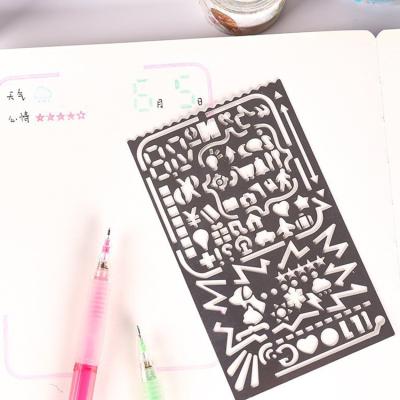 天气 6月5日
心情